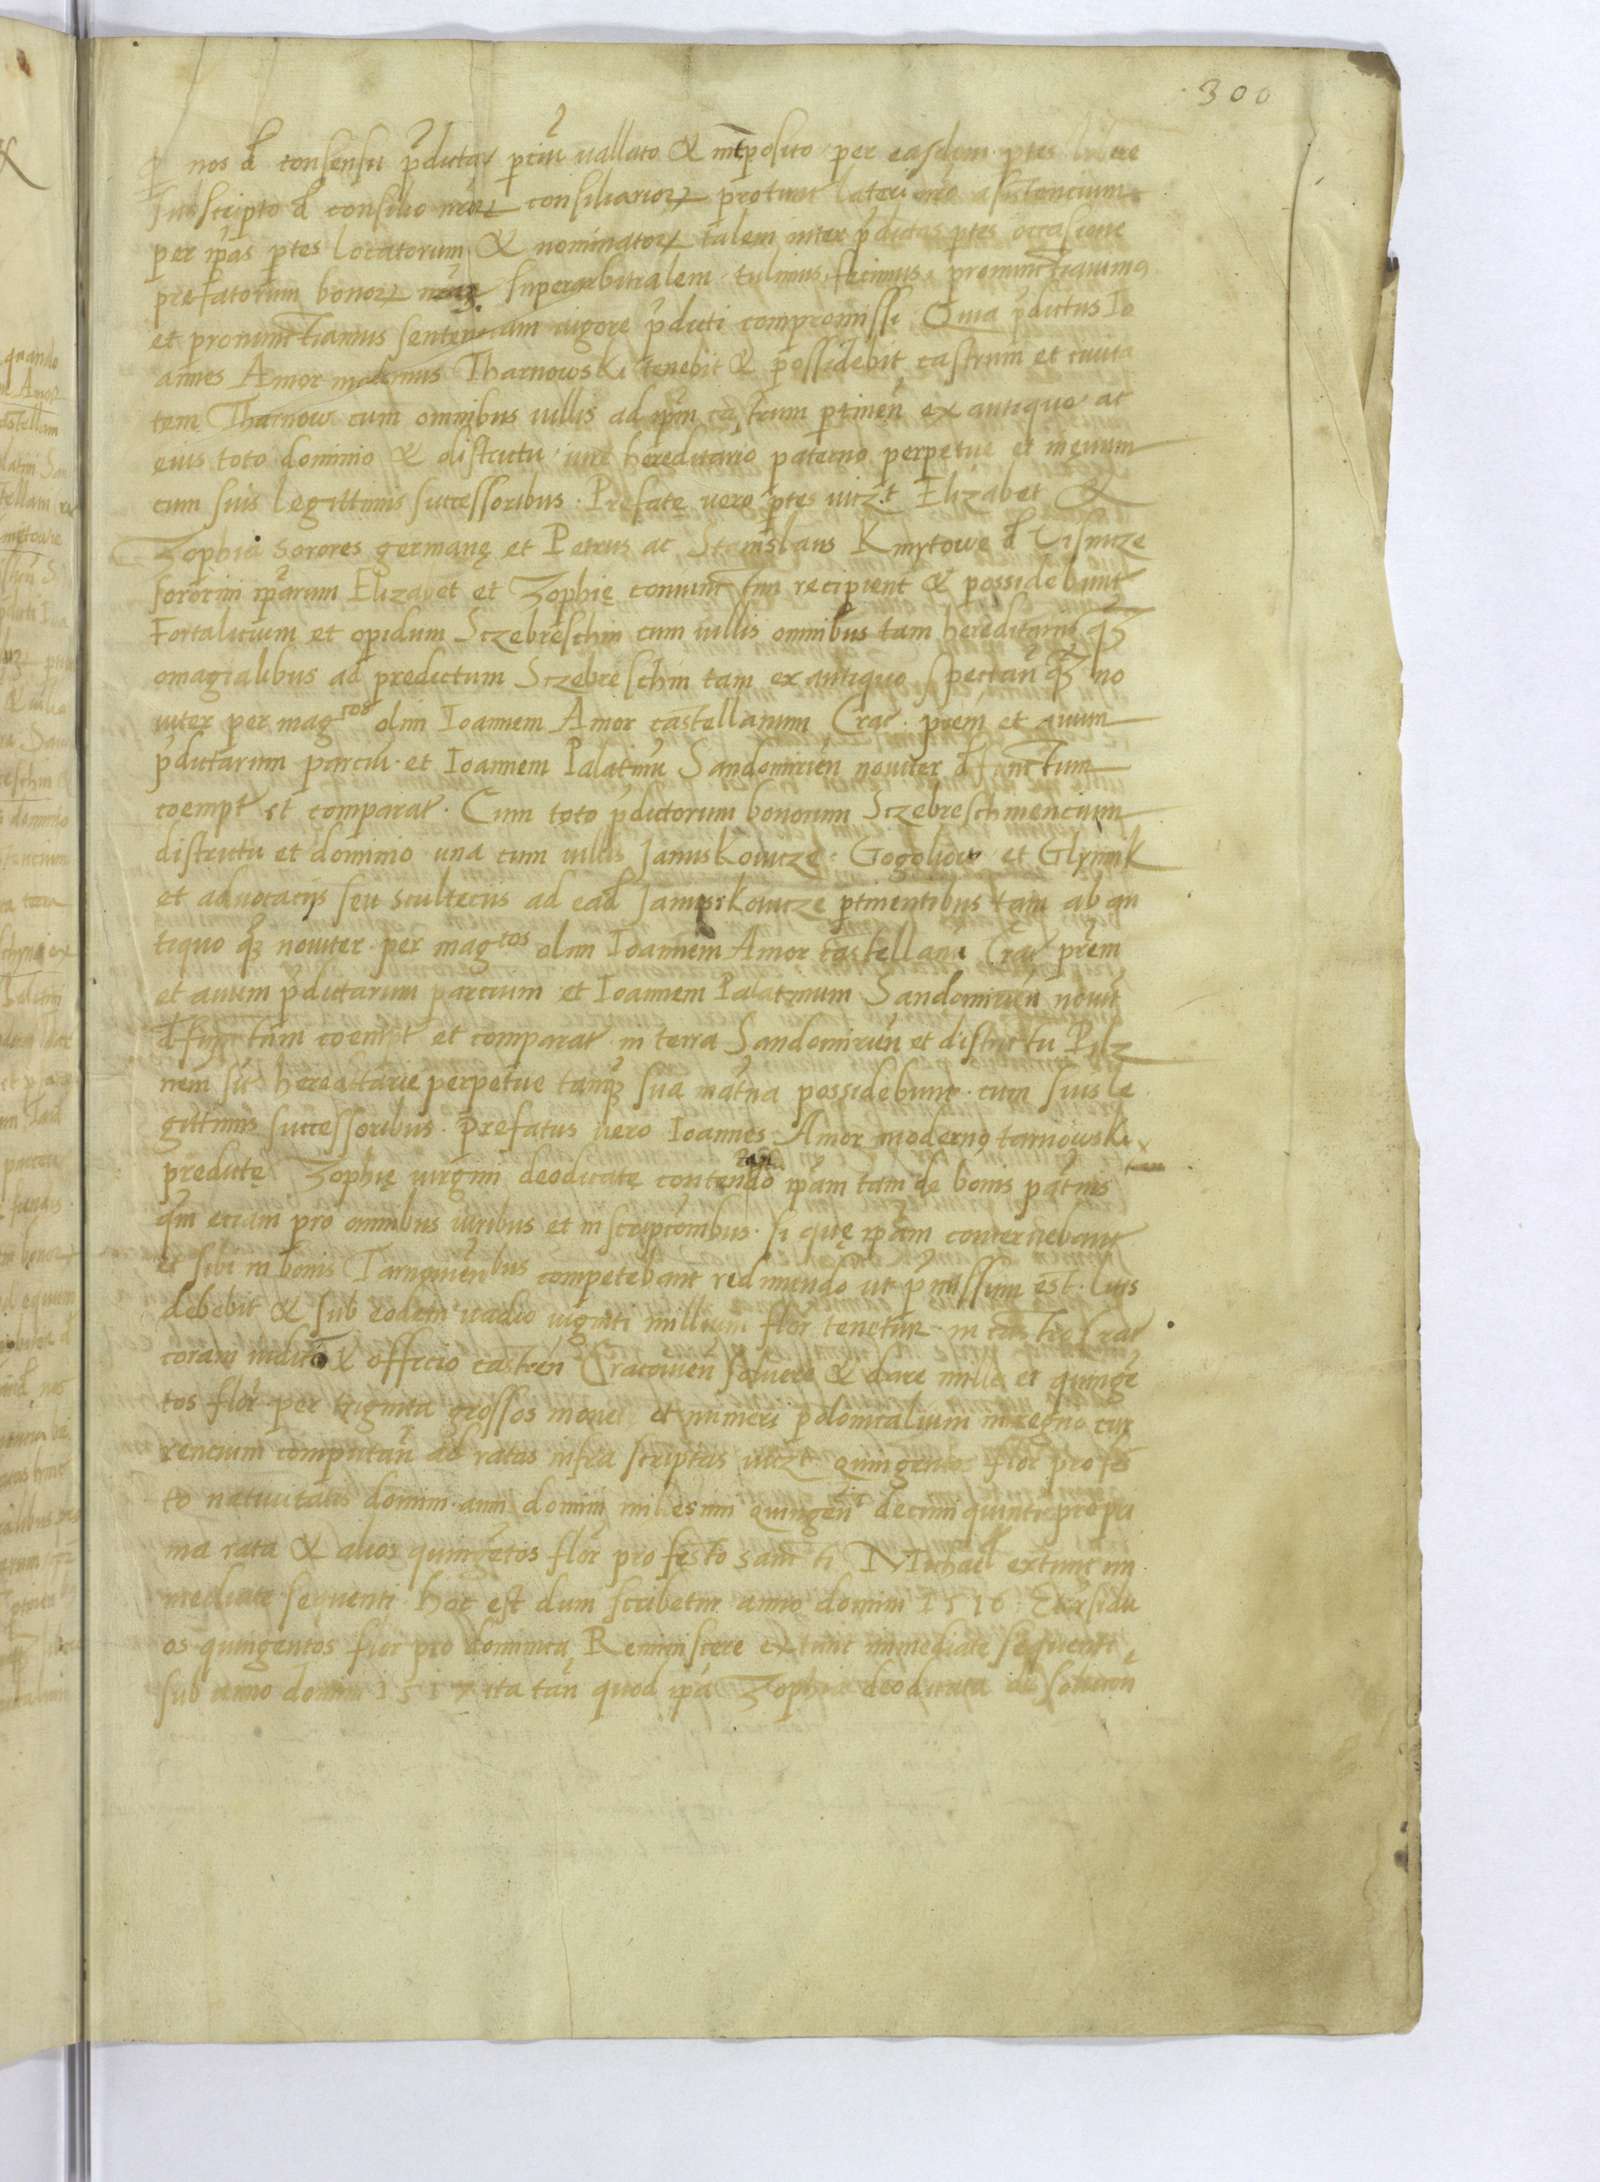 300
nos d consensu p̄dictaꝝ p̄ciū vallato & int̄posito per easdem p̄tes
Inscripto d consilio nr̄oꝝ consiliarioꝝ protunc lateri nr̄o assistencium
per ip̄as p̄tes locatorum & nominatoꝝ talem inter p̄dictas p̄tes occasione
prefatorum bonoꝝ superarbitralem tulimus, fecimus, pronunctiauimus
et pronunctiamus sentenciam uigore p̄dicti compromissi, Quia p̄dictus Io
annes Amor modernus Tharnowski tenebit & possidebit castrum et ciuita
tem Tharnow cum omnibus uillis ad ip̄m castrum p̄tinen̄ ex antiquo ac
eius toto dominio & districtu iure hereditario paterno perpetue et in euum
cum suis legittimis successoribus. Prefatę uero p̄tes uicz̄t Elizabet &
Zophia sorores germanę et Petrus ac Stanislaus Kmytowe d Visnicze
sororini ip̄arum Elizabet et Zophię coniunctim recipient & possidebunt
Fortalicium et opidum Sczebreschin cum uillis omnibus tam hereditariis q̄ꝫ
omagialibus ad predictum Sczebreschin tam ex antiquo spectan̄ q̄ꝫ no
uiter per mag̅cos olim Ioannem Amor castellanum Crac. p̄rem et auum
p̄dictarum parciū et Ioannem Palatinū Sandomirien̄ nouiter dfunctum
coempt et comparat. Cum toto p̄dictorum bonorum Sczebreschinencium
districtu et dominio una cum uillis Januskouicze Gogolow et Glynnik
et aduocaciis seu scultecijs ad ead Januskouicze p̄tinentibus tam ab an
tiquo q̄ꝫ nouiter per mag̅cos olim Ioannem Amor castellanū Crac p̄rem
et auum p̄dictarum parcium et Ioannem Palatinum Sandomirien̄ nouit̄
dfunctum coempt et comparat in terra Sandomirien̄ et districtu Pilz
nen̄ sit̄ hereditarie perpetue tamq̄ꝫ sua mat̄na possidebunt cum suis le
gittimis successoribus. Prefatus uero Ioannes Amor modernꝰ tarnowski
predictę Zophię uirgini deodicatę contentando ip̄am tam de bonis pat̄nis
q̄m eciam pro omnibus iuribus et inscripc̄ombus. si quę ip̄am concernebant
et sibi in bonis Tarnowien̄bus competebant redimendo ut p̄missum est.
debebit & sub eodem uadio uiginti millium flor tenetur in castro Crac
coram iudicio & officio castren̄ Cracouien̄ soluere & dare mille et quingē
tos flor̄ per triginta grossos monet et numeri polonicalium in regno cur
rencium computan̄ ad ratas infra scriptas uicz̄t quingentos flor̄ pro fes
to natiuitatis domini anni domini millesimi quingen̄ti decimi quinti pro pri
ma rata & alios quingētos flor̄ pro festo sancti Michael extunc im
mediate sequenti hoc est dum scribetur anno domini 1516. residu
os quingentos flor pro dominica Reminiscere extunc immediate sequenti
sub anno domini 1517 ita tān quod ip̄a Zophia deodicata de solucion̄